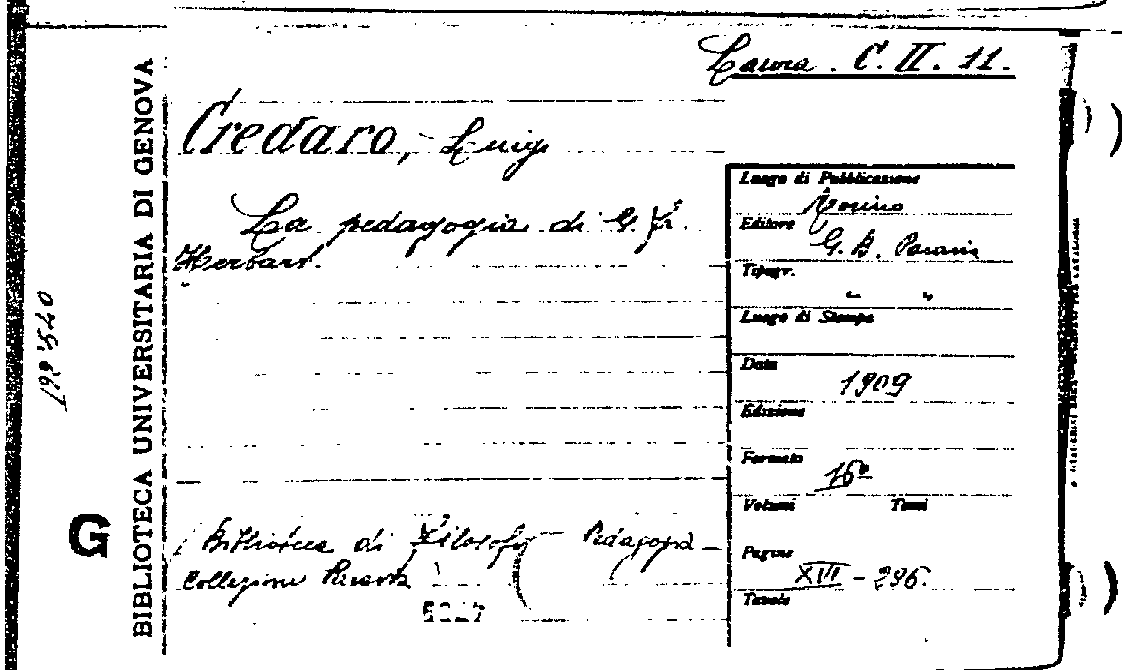 Laura. C. II. 11.
Credaro, Luigi
La pedagogia di G. F.
Herbart.
Biblioteca di Filosofia Pedagogia
Collezione Paravia
Luogo di Pubblicazione
Torino
Editore
G. B. Paravia
Tipogr.
" "
Luogo di Stampa
Data
1909
Edizione
Formato
16º
Volumi Tomi
Pagine
XIII - 296.
Tavole
BIBLIOTECA UNIVERSITARIA DI GENOVA
G